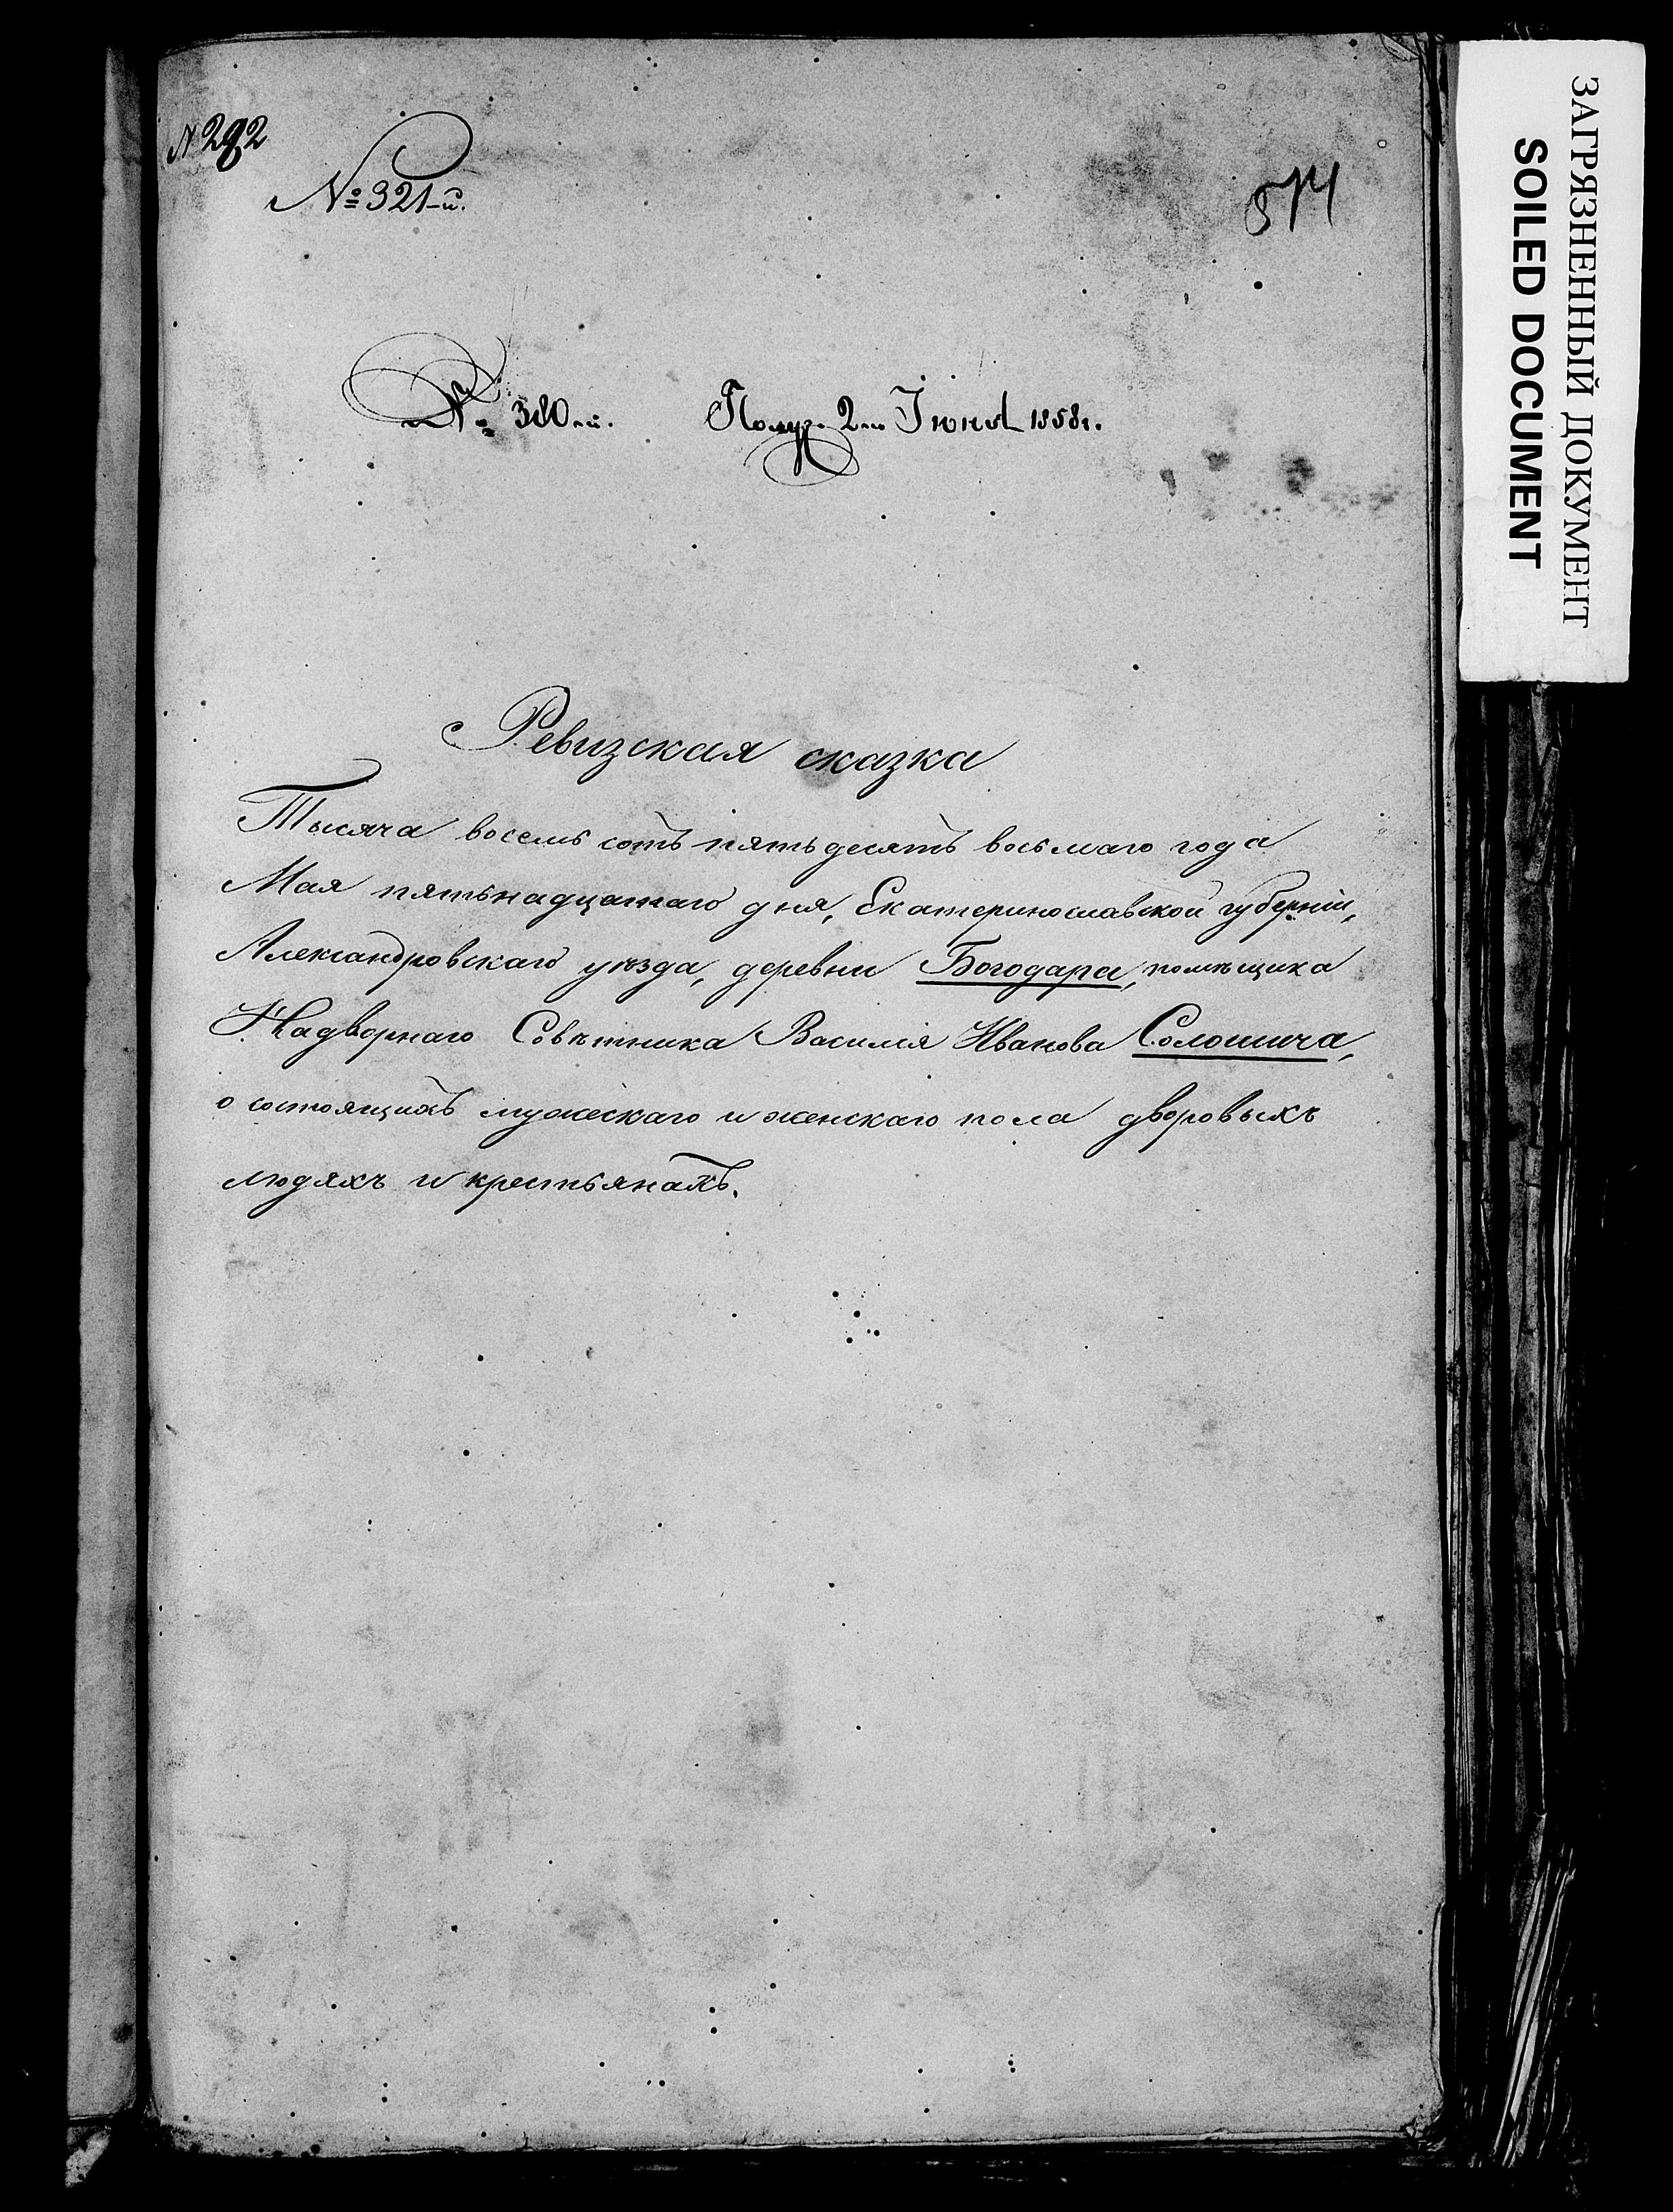 № 292
№ 321-й.
574
№ 380-й. Получ. 2-го Іюня 1858 г.
Ревизская сказка
Тысяча восемь сотъ пятьдесятъ восьмаго года
Мая пятьнадцатаго дня, Екатеринославской губерніи,
Александровскаго уѣзда, деревни Богодара, помѣщика
Надворнаго Совѣтника Василія Иванова Солошича,
о состоящихъ мужескаго и женскаго пола дворовыхъ
людяхъ и крестьянахъ.
ЗАГРЯЗНЕННЫЙ ДОКУМЕНТ
SOILED DOCUMENT